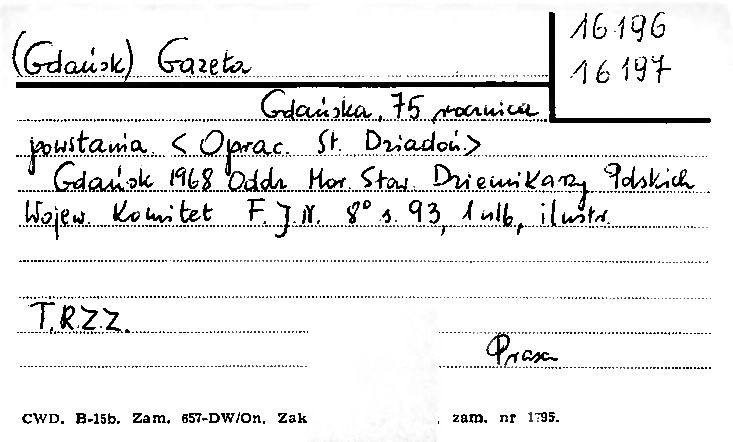 16196
16197
(Gdańsk) Gazeta
Gdańska, 75 rocznica
powstania. < Oprac. St. Dziadoń>
Gdańsk 1968 Oddz Mor. Stow. Dziennikarzy Polskich
Wojew. Komitet F.J.N. 8° s. 93, 1 nlb, ilustr.
T.R.Z.Z.
Prasa
CWD. B-15b. Zam. 657-DW/On. Zak , zam. nr 1795.